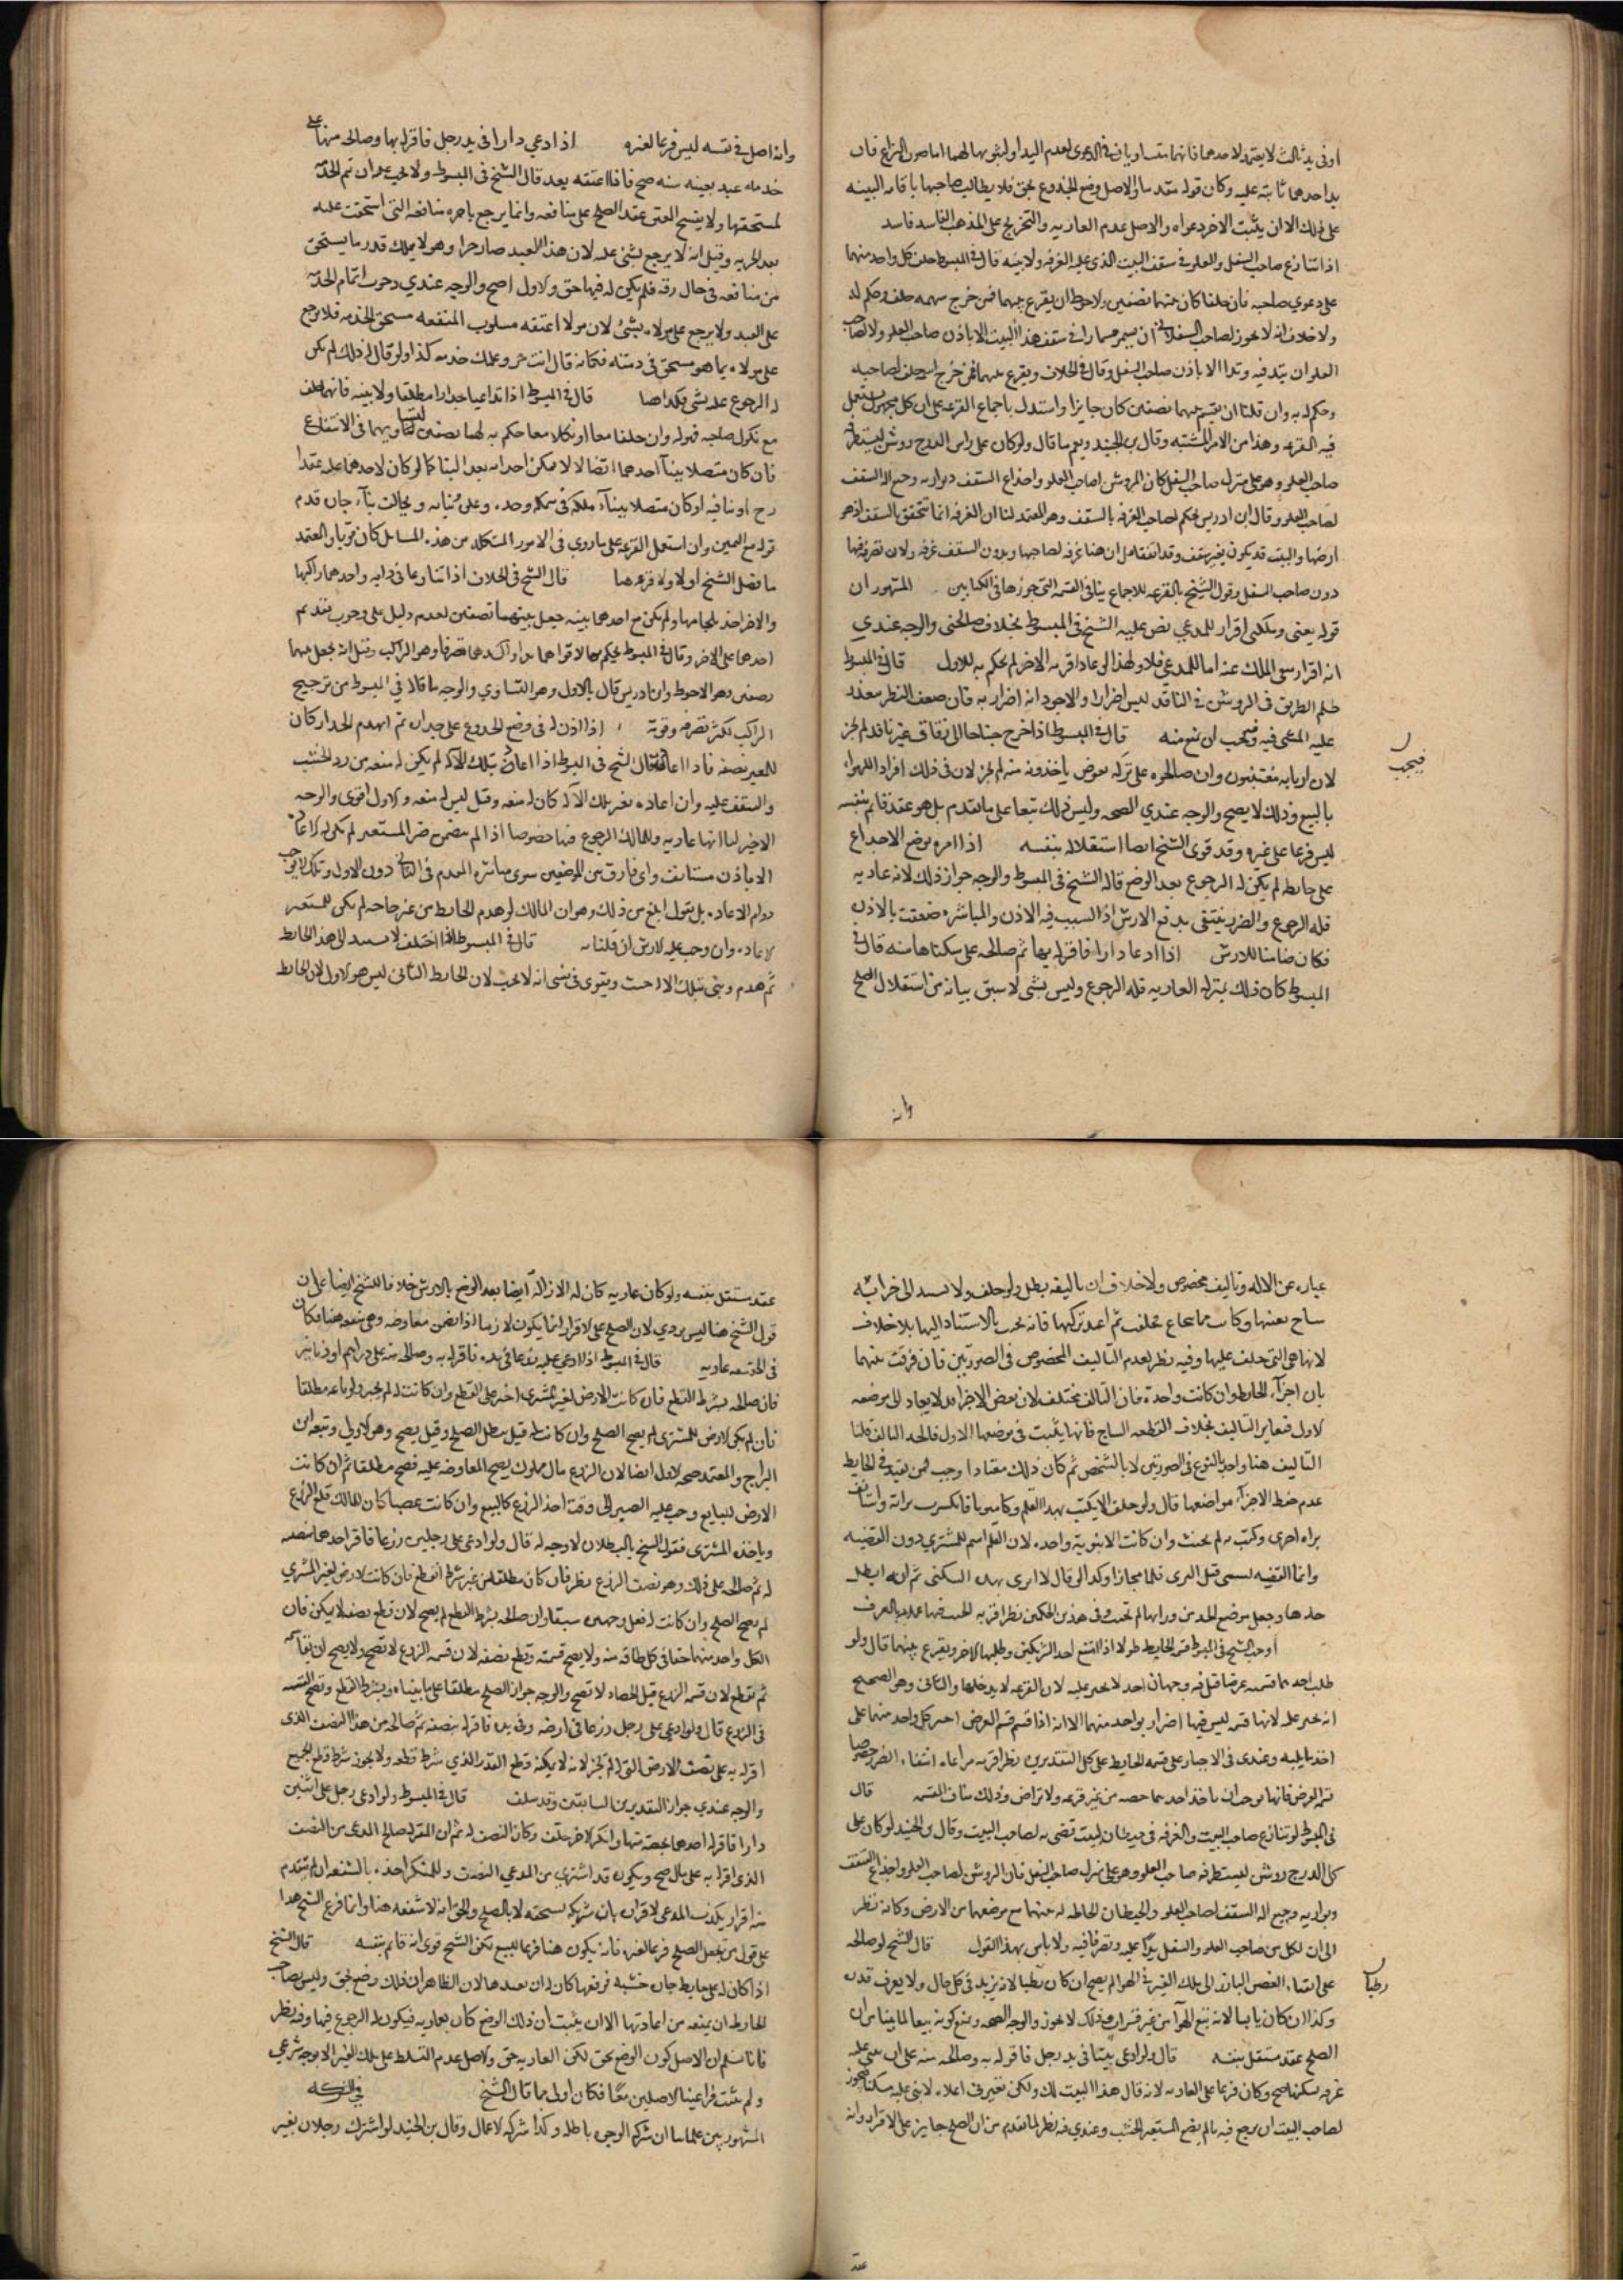 او في يد ثالث لا يعتمد لاحدهما فانهما متساويان في الدعوى لعدم اليد او لثبوتها لهما اما صورة النزاع فان
يد احدهما ثابتة عليه وكان قوله مقدما والاصل وضع الجذوع بحق فلا يطالب صاحبها باقامة البينه
على ذلك الا ان يثبت الاخر دعواه والاصل عدم العاريه والتخريج على المذهب الفاسد فاسد
اذا تنازع صاحب السفل والعلو في سقف البيت الذي عليه الغرفه ولا بينه قال في المبسوط حلف كل واحد منهما
على دعوي صاحبه فان حلفا كان بينهما نصفين والاحوط ان يقرع بينهما فمن خرج سهمه حلف وحكم له
ولا خلاف انه لا يجوز لصاحب السفل ان يسمر مسمارا في سقف هذا البيت الا باذن صاحب العلو ولا لصاحب
العلو ان يتد فيه وتدا الا باذن صاحب السفل وقال في الخلاف ويقرع بينهما فمن خرج اسمه حلف لصاحبه
وحكم له به وان قلنا ان يقسم بينهما نصفين كان جايزا واستدل باجماع الفرقه على ان كل مجهول يستعمل
فيه القرعه وهذا من الامر المشتبه وقال بن الجنيد ونعم ما قال ولو كان على راس الدرج روشن ليستطرقه
صاحب العلو وهو على منزل صاحب السفل كان الروشن لصاحب العلو واجذاع السقف وبواريه وجميع آلة السقف
لصاحب العلو وقال ابن ادريس يحكم لصاحب الغرفه بالسقف وهو المعتمد لنا ان الغرفه انما تتحقق بالسقف اذ هو
ارضها والبيت قد يكون بغير سقف وقد اتفقا على ان هنا غرفه لصاحبها وبدون السقف لا غرفه ولان تصرفه فيها
دون صاحب السفل وقول الشيخ بالقرعه للاجماع ينافي القسمه التي جوزها في الكتابين المشهور ان
قوله بعني وملكني اقرار للمدعي نص عليه الشيخ في المبسوط بخلاف صالحني والوجه عندي
انه اقرار بنفي الملك عنه اما للمدعي فلا ولهذا لو عاد اقر به لاخر لم يحكم به للاول قال في المبسوط
ظلم الطريق في الروشن في النافذ ليس اضرارا والاجود انه اضرار به فان ضعف النظر معذر
عليه المشي فيه فيجب ان يمنع منه قال في المبسوط اذا اخرج جناحا الى زقاق غير نافذ لم يجز
فيجب
لان اربابه متعينون وان صالحوه على تركه بعوض ياخذونه منه لم يجز لان في ذلك افراد الهواء
بالبيع وذلك لا يصح والوجه عندي الصحه وليس ذلك تبعا على ما تقدم بل هو عقد قائم بنفسه
ليس فرعا على غيره وقد قوى الشيخ ايضا استقلاله بنفسه اذا امره بوضع الاجذاع
على حايط لم يكن له الرجوع بعد الوضع قاله الشيخ في المبسوط والوجه جواز ذلك لانه عاريه
فله الرجوع والضرر ينتفي بدفع الارش اذ السبب فيه الاذن والمباشره ضعفت بالاذن
فكان ضامنا للارش اذا ادعا دارا فاقر له بها ثم صالحه على سكناها سنه قال في
المبسوط كان ذلك بمنزلة العاريه فله الرجوع وليس بشي لا سبق بيانه من استقلال الصلح
وانه
وانه اصل في نفسه ليس فرعا لغيره اذا ادعي دارا في يد رجل فاقر له بها وصالحه منها على
خدمة عبد بعينه سنه صح فاذا اعتقه بعد قال الشيخ في المبسوط
لمستحقها ولا ينفسخ العتق عقد الصلح على منافعه وانما يرجع باجره منافعه التي استحقت عليه
بعد الحريه وقيل انه لا يرجع بشي عليه لان هذا العبد صار حرا وهو لا يملك قدر ما يستحق
من منافعه في حال رقه فلم يكن له فيها حق والاول اصح والوجه عندي وجوب اتمام الخدمة
على العبد ولا يرجع على مولاه بشئ لان مولاه اعتقه مسلوب المنفعه مستحق الخدمه فلا يرجع
على مولاه بما هو مستحق في ذمته فكانه قال انت حر وعملك خدمه كذا ولو قال له ذلك لم يكن
له الرجوع عليه بشي فكذا هنا قال في المبسوط اذا تداعيا جدارا مطلقا ولا بينه فانهما يحلف
مع نكول صاحبه فهو له وان حلفا معا او نكلا معا حكم به لهما نصفين لتساويهما في الانتفاع
فان كان متصلا ببناء احدهما اتصالا لا يمكن احداثه بعد البنا كما لو كان لاحدهما عليه عقد
قوله مع اليمين وان استعمل القرعه على ما روي في الامور المشكله من هذه المسايل كان قويا والمعتمد
ما فصل الشيخ اولا ولا قرعه هنا قال الشيخ في الخلاف اذا تنازعا في دابه واحدهما راكبها
والاخر اخذ بلجامها ولم يكن مع احدهما بينه جعل بينهما نصفين لعدم دليل على وجوب تقديم
احدهما على الاخر وقال في المبسوط يحكم بها لاقواهما يدا واكدهما تصرفا وهو الراكب وقيل انه يجعل بينهما
نصفين وهو الاحوط وابن ادريس قال بالاول وهو التساوي والوجه ما قالا في المبسوط من ترجيح
الراكب لكثرة تصرفه وقوته اذا اذن له في وضع الجذوع على جداره ثم انهدم الجدار كان
والسقف عليه وان اعاده بغير تلك الآله كان له منعه وقيل ليس له منعه والاول اقوى والوجه
الاخير لنا انها عاريه وللمالك الرجوع فيها خصوصا اذا لم يتضمن ضرر المستعير لم يكن له الاعاده
الا باذن مستانف واي فارق بين الموضعين سوى مباشره الهدم في الثاني دون الاول وتملك لا يوجب
دوام الاعاده بل نقول ابلغ من ذلك وهو ان المالك لو هدم الحايط من غير حاجه لم يكن للمستعير
الاعاده وان وجب عليه الارش ان قلنا به قال في المبسوط اذا حلف لا يستند الى هذا الحايط
ثم هدم وبني بتلك الالة حنث ويقوى في نفسي انه لا يحنث لان الحايط الثاني ليس هو الاول لان الحايط
عباره عن الاله وتاليف مخصوص ولا خلاف ان تاليفه بطل ولو حلف ولا يستند الى خزانة
ساج بعينها وكانت مما ينحاع فخلعت ثم اعيد تركيبها فانه يحنث بالاستناد اليها بلا خلاف
لانها هي التي حلف عليها وفيه نظر لعدم التاليف المخصوص في الصورتين فان فرقت بينهما
بان اجزاء الحايط وان كانت واحدة فان التالف مختلف لان بعض الاجزاء لا يعاد الى موضعه
الاول فتغاير التاليف بخلاف القطعه الساج فانها يثبت في موضعها الاول فاتحد التاليف قلنا
التاليف هنا واحد بالنوع في الصورتين لا بالشخص ثم كان ذلك مقتضا
عدم حفظ الاجزاء مواضعها قال ولو حلف لا يكتب بهذا القلم وكان مبريا فانكسرت برايته واستانف
براه اخرى وكتب به لم يحنث وان كانت الانبوبة واحده لان القلم اسم للمشترى دون القصبه
وانما القصبه تسمى قبل البرى قلما مجازا وكذا لو قال لا ابري بهذه السكين ثم انه ابطل
حدها وجعل موضع الحد من ورائها لم تحنث وفي هذين الحكمين نظر اقربه الحنث فيهما عملا بالعرف
اوجب الشيخ في المبسوط قسمة الحايط طولا اذا امتنع احد الشريكين وطلبها الاخر ويقرع بينهما قال ولو
طلب احدهما قسمته عرضا قيل فيه وجهان احدهما لا يجبر عليه لان القرعه لا يدخلها والثاني وهو الصحيح
انه يجبر عليه لانها قسمة ليس فيها اضرار بواحد منهما الا انه اذا قسم قسم العرض اجبر كل واحد منهما على
اخذ ما يليه وعندي في الاجبار على قسمه الحايط على كل التقديرين نظر اقربه مراعاه انتفاء الضرر خصوصا
قسمة العرض فانها يوجب ان ياخذ احدهما حصه من غير قرعه ولا تراض وذلك ينافي القسمه قال
في المبسوط لو تنازع صاحب البيت والغرفه في حيطان البيت قضى به لصاحب البيت وقال بن الجنيد لو كان على
كل الدرج روشن ليستطرقه صاحب العلو وهو على منزل صاحب السفل فان الروشن لصاحب العلو واجذاع السقف
وبواريه وجميع آلة السقف لصاحب العلو والحيطان الحامله له بينهما مع موضعها من الارض وكانه نظر
الى ان لكل من صاحب العلو والسفل يدا عليه وتصرفا فيه ولا باس بهذا القول قال الشيخ لو صالحه
على ابقاء الغصن البارز الى ملك الغير في الهوا لم يصح ان كان رطبا لانه يزيد في كل حال ولا يعرف قدره
رطبا
وكذا ان كان يابسا لانه بيع الهوآء من غير قرار وذلك لا يجوز والوجه الصحه ونمنع كونه بيعا لما بينا من ان
الصلح عقد مستقل بنفسه قال ولو ادعى بيتا في يد رجل فاقر له به وصالحه منه على ان يبني عليه
غرفه يسكنها صح وكان فرعا على العاريه لانه قال هذا البيت لك ولكن تعيرني اعلاه لابني عليه مسكنا فيجوز
لصاحب البيت ان يرجع فيه ما لم يضع المستعير الخشب وعندي فيه نظر لما تقدم من ان الصلح جايز على الاقرار وانه
عقد
عقد مستقل بنفسه ولو كان عاريه كان له الازالة ايضا بعد الوضع بالارش خلافا للشيخ ايضا على ان
قول الشيخ هنا ليس بردي لان الصلح على الاقرار انما يكون لازما اذا تضمن معاوضه وهي منفيه هنا فكان
في الحقيقه عاريه قال في المبسوط اذا ادعي عليه زرعا في يده فاقر له به وصالحه منه على دراهم او دنانير
فان صالحه بشرط القطع فان كانت الارض لغير المشترى اجبر على القطع وان كانت له لم يجبر ولو باعه مطلقا
فان لم يكن الارض للمشترى لم يصح الصلح وان كانت له قيل يبطل الصلح وقيل يصح وهو الاولي وتبعه ابن
البراج والمعتمد صحه الاول ايضا لان الزرع مال مملوك يصح المعاوضه عليه فصح مطلقا ثم ان كانت
الارض للبايع وجب عليه الصبر الى وقت اخذ الزرع كالبيع وان كانت غصبا كان للمالك قلع الزرع
وياخذه المشترى فقول الشيخ بالبطلان لا وجه له قال ولو ادعى على رجلين زرعا فاقر احدهما بنصفه
له ثم صالحه على ذلك وهو نصف الزرع نظر فان كان مطلقا من غير شرط القطع فان كانت الارض لغير المشتري
لم يصح الصلح وان كانت له فعلى وجهين سبقا وان صالحه بشرط القطع لم يصح لان قطع نصفه لا يمكن فان
لكل واحد منهما حقا في كل طاقه منه ولا يصح قسمته وقطع نصفه لان قسمه الزرع لا تصح ولا يصح ان يقاسم
ثم يقطع لان قسمه الزرع قبل الحصاد لا تصح والوجه جواز الصلح مطلقا على ما بيناه وبشرط القطع وتصح القسمه
في الزرع قال ولو ادعي على رجل زرعا في ارضه وفي يده فاقر له بنصفه ثم صالحه من هذا النصف الذي
اقر له به على نصف الارض التي له لم يجز لانه لا يمكنه قطع القدر الذي شرط قطعه ولا يجوز شرط قطع الجميع
والوجه عندي جواز التقديرين السابقين وقد سلف قال في المبسوط ولو ادعى رجل على اثنين
دارا فاقر له احدهما بحصته منها وانكر الاخر حلف وكان النصف له ثم ان المقر له صالح المدعى من النصف
الذي اقر له به على مال صح ويكون قد اشترى من المدعي النصف وللمنكر اخذه بالشفعه ان لم يتقدم
منه اقرار يكذب المدعي لاقراره بان شريكه يستحقه لا بالصلح والحق انه لا شفعه هنا وانما فرع الشيخ هذا
على قول من يجعل الصلح فرعا لغيره فانه يكون هنا فرعا للبيع لكن الشيخ قوى انه قائم بنفسه قال الشيخ
اذا كان له على حايط جاره خشبه فرفعها كان له ان يعيدها لان الظاهر ان ذلك وضع بحق وليس لصاحب
الحايط ان يمنعه من اعادتها الا ان يثبت ان ذلك الوضع كان بعاريه فيكون له الرجوع فيها وفيه نظر
فانا نسلم ان الاصل كون الوضع بحق لكن العاريه حق والاصل عدم التسلط على ملك الغير الا بوجه شرعي
ولم يثبت فراعينا الاصلين معا فكان اولى مما قال الشيخ في الشركه
المشهور بين علمائنا ان شركة الوجوه باطله وكذا شركه الاعمال وقال بن الجنيد لو اشترك رجلان بغير